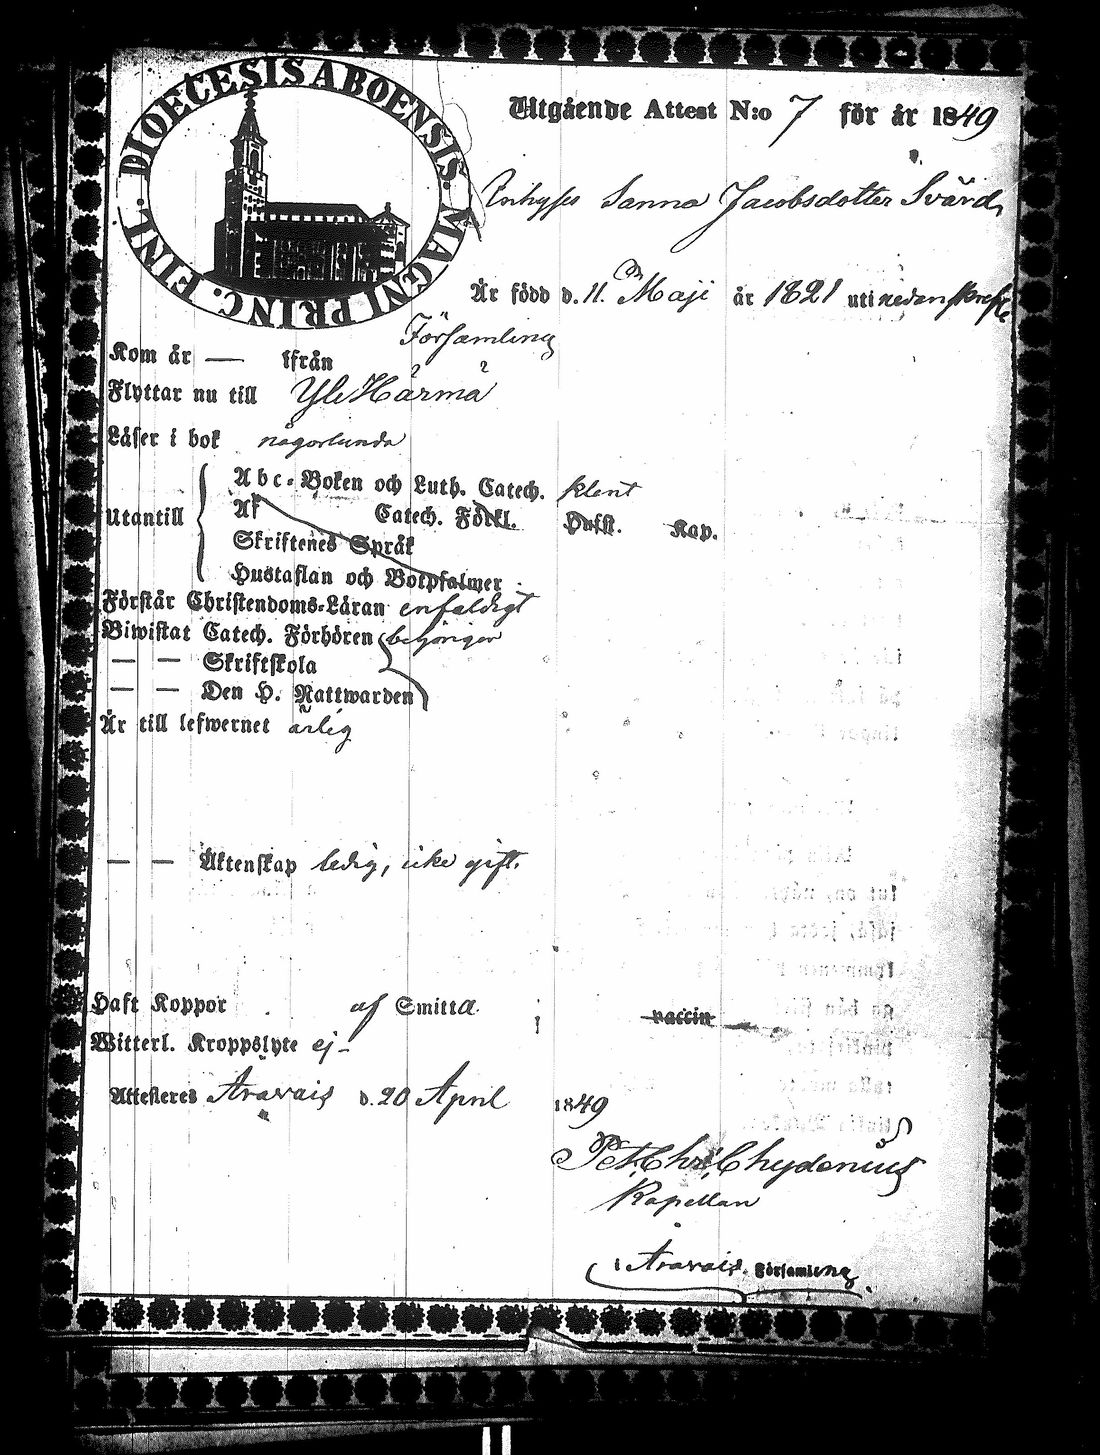 DIOECESIS ABOENSIS. MAGNI PRINC. FINL.
Utgående Attest N:o 7 för år 1849
Inhyses Sanna Jacobsdotter Svärd,
Är född d. 11. Maji år 1821 uti nedanskrefne
Församling
Kom år — ifrån
Flyttar nu till Yle Härmä
Läser i bok någorlunda
Utantill
Abc-Boken och Luth. Catech. klent
Af Catech. Förkl. Hufst. Kap.
Skriftenes Språk
Hustaflan och Botpsalmer
Förstår Christendoms-Läran enfaldigt
Biwistat Catech. Förhören behörigen
— — Skriftskola
— — Den H. Nattwarden
Är till lefwernet ärlig
— — Äktenskap ledig, icke gift.
Haft Koppor af Smitta vaccin
Witterl. Kroppslyte ej –
Attesteres Åravais d. 20 April 1849
Pet. Chr. Chydenius
Kapellan
i Åravais. Församling